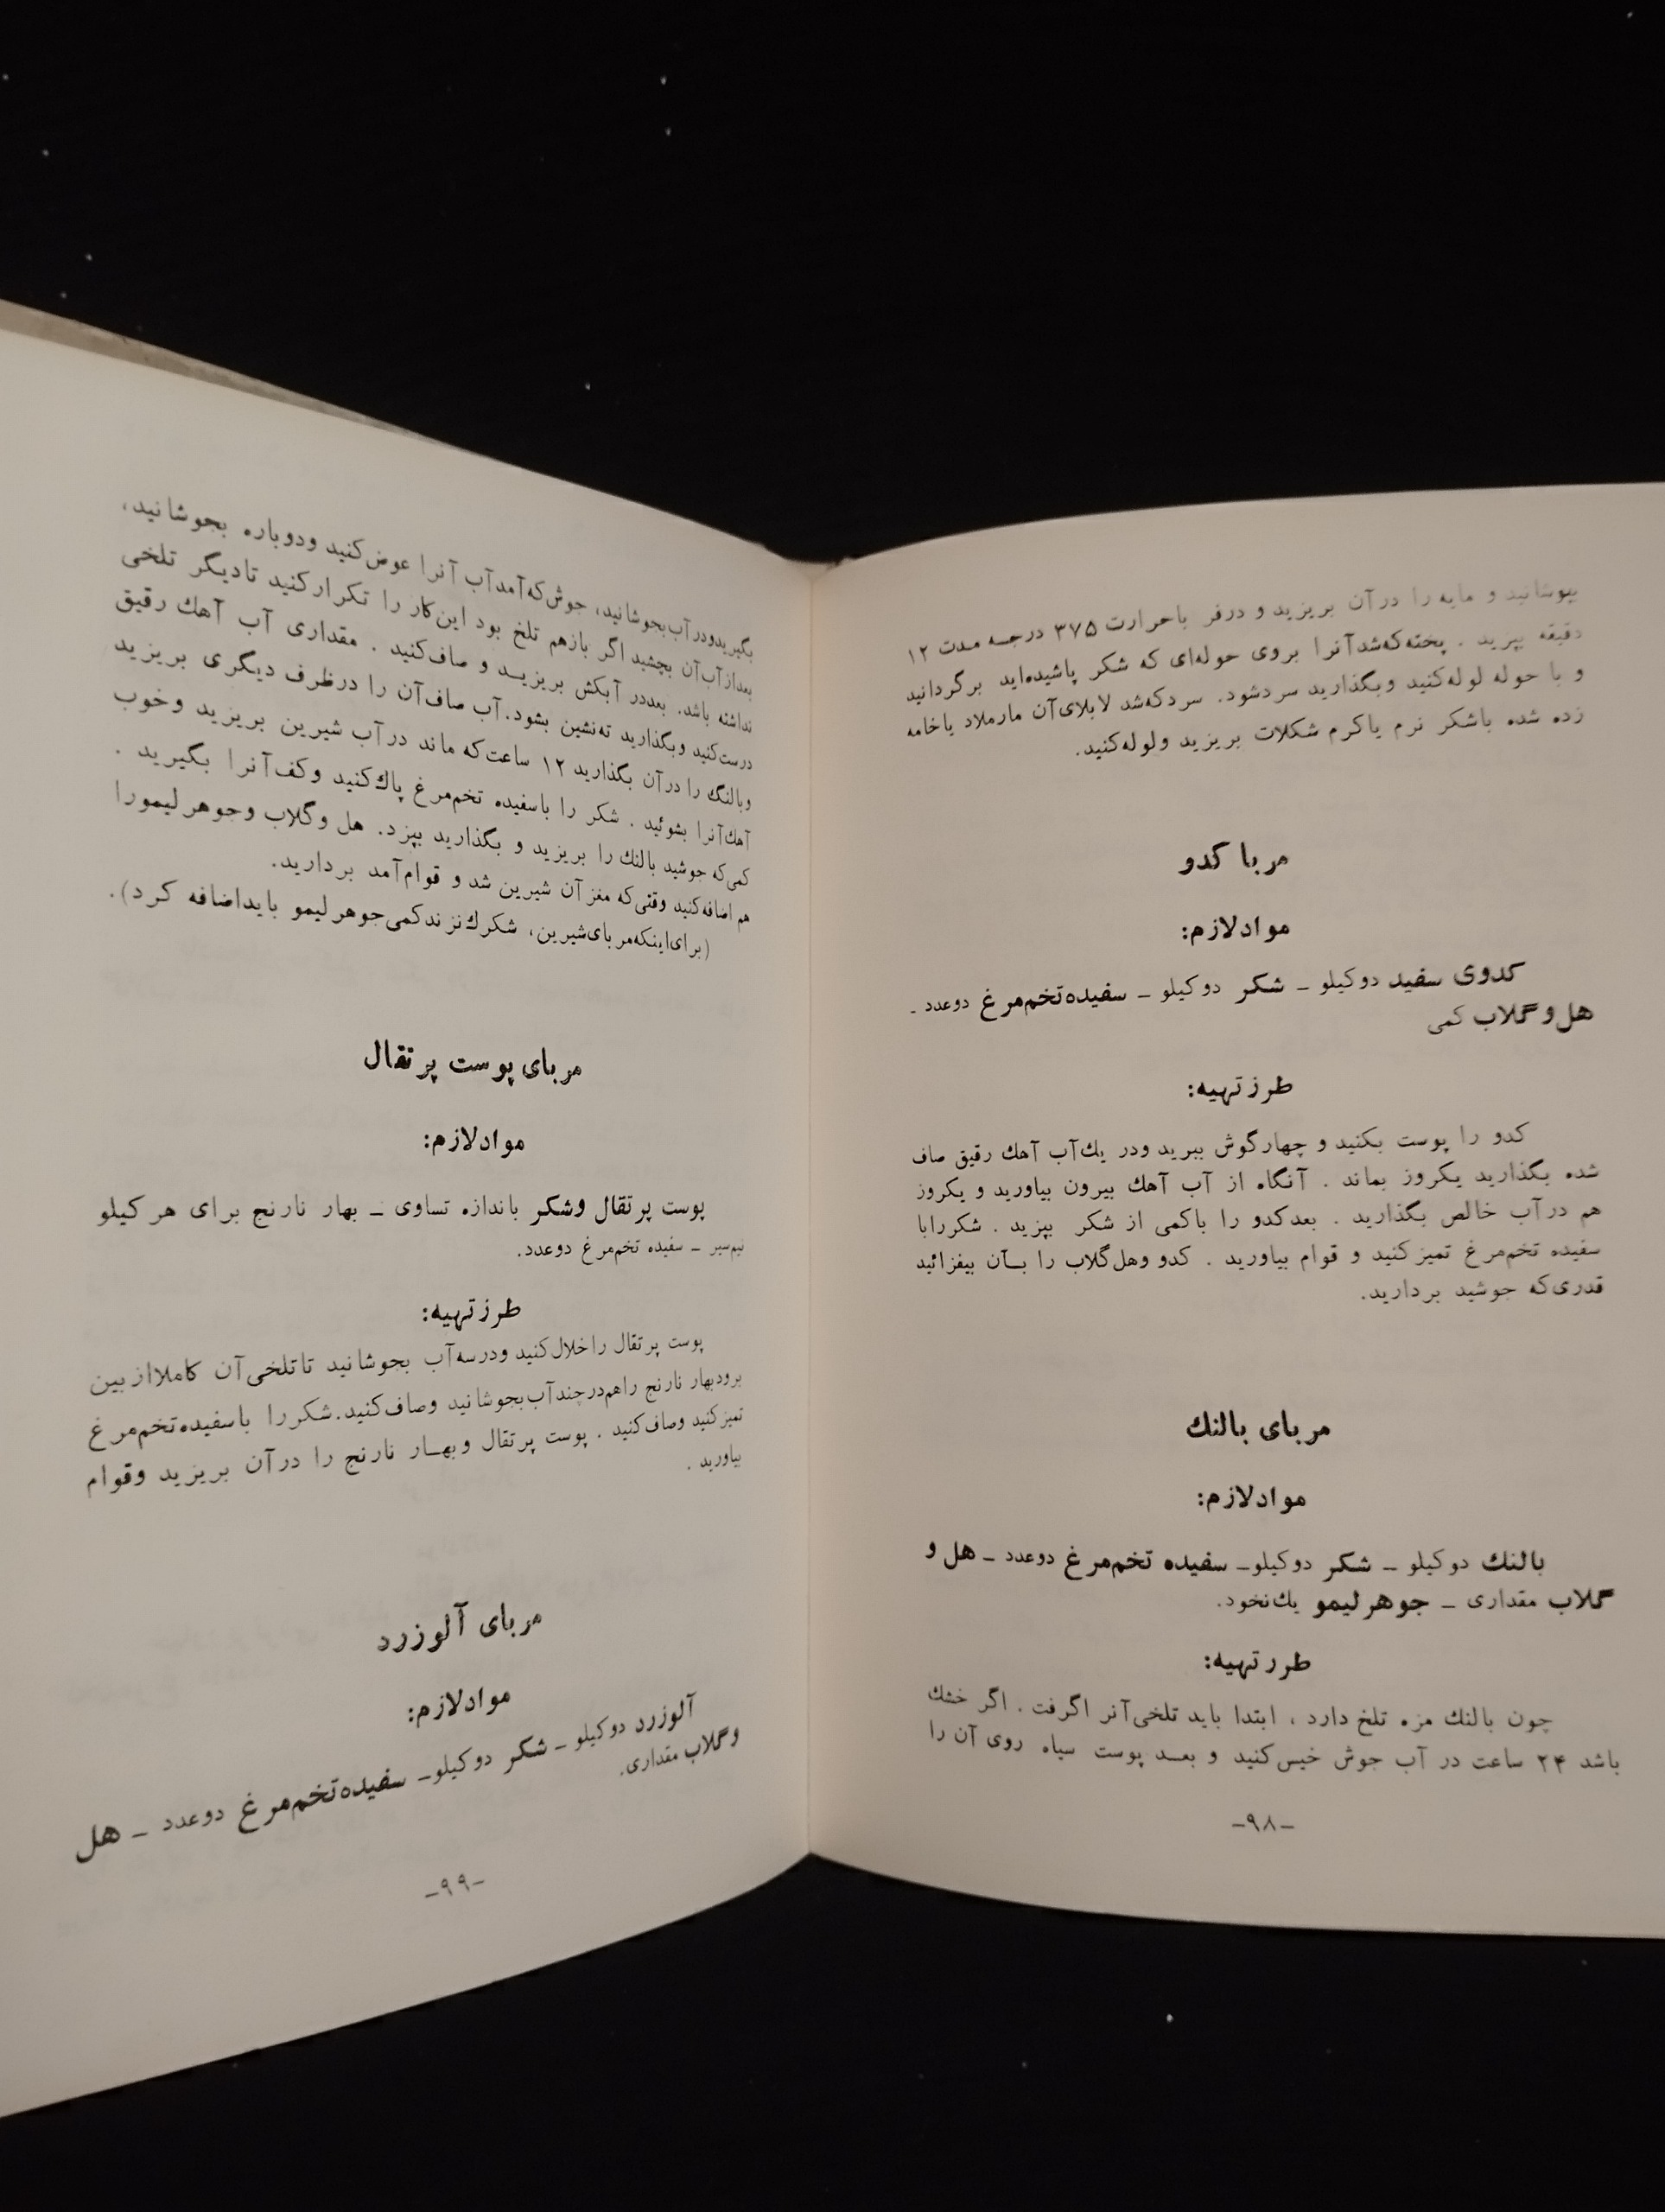 بپوشانید و مایه را درآن بریزید و درفر باحرارت ۳۷۵ درجـه مدت ۱۲
دقیقه بپرید . پخته‌که‌شدآنرا بروی حوله‌ای که شکر پاشیده‌اید برگردانید
و با حوله لوله‌کنید وبگذارید سردشود. سردکه‌شد لابلای‌آن مارملاد یاخامه
زده شده باشکر نرم یاکرم شکلات بریزید ولوله‌کنید.
مربا کدو
موادلازم:
کدوی سفید دوکیلو ـ شکر دوکیلو ـ سفیده‌تخم‌مرغ دوعدد ـ
هل‌وگلاب کمی
طرزتهیه:
کدو را پوست بکنید و چهارگوش ببرید ودر یك‌آب آهك رقیق صاف
شده بگذارید یکروز بماند . آنگاه از آب آهك بیرون بیاورید و یکروز
هم درآب خالص بگذارید . بعدکدو را باکمی از شکر بپزید . شکررابا
سفیده تخم‌مرغ تمیزکنید و قوام بیاورید . کدو وهل‌گلاب را بـآن بیفزائید
قدری‌که جوشید بردارید.
مربای بالنك
موادلازم:
بالنك دوکیلو ـ شکر دوکیلوـ سفیده تخم‌مرغ دوعدد ـ هل و
گلاب مقداری ـ جوهرلیمو یك‌نخود.
طررتهیه:
چون بالنك مزه تلخ دارد ، ابتدا باید تلخی‌آنر اگرفت . اگر خشك
باشد ۲۴ ساعت در آب جوش خیس‌کنید و بعـد پوست سیاه روی آن را
-۹۸-
بگیریدودرآب‌بجوشانید، جوش‌که‌آمدآب آنرا عوض‌کنید ودوباره بجوشانید،
بعدازآب‌آن بچشید اگر بازهم تلخ بود این‌کار را تکرارکنید تادیگر تلخی
نداشته باشد. بعددر آبکش بریزیـد و صاف‌کنید . مقداری آب آهك رقیق
درست‌کنید وبگذارید ته‌نشین بشود.آب صاف‌آن را درظرف دیگری بریزید
وبالنگ را درآن بگذارید ۱۲ ساعت‌که ماند درآب شیرین بریزید وخوب
آهك‌آنرا بشوئید . شکر را باسفیده تخم‌مرغ پاك‌کنید وکف‌آنرا بگیرید .
کمی‌که جوشید بالنك را بریزید و بگذارید بپزد. هل وگلاب وجوهرلیمورا
هم اضافه‌کنید وقتی‌که مغزآن شیرین شد و قوام‌آمد بردارید.
(برای‌اینکه‌مربای‌شیرین، شکرك‌نزندکمی‌جوهرلیمو بایداضافه کرد).
مربای پوست پرتقال
موادلازم:
پوست پرتقال وشکر باندازه تساوی ـ بهار نارنج برای هرکیلو
نیم‌سیر ـ سفیده تخم‌مرغ دوعدد.
طرزتهیه:
پوست پرتقال راخلال‌کنید ودرسه‌آب بجوشانید تاتلخی‌آن کاملاازبین
برودبهار نارنج راهم‌درچندآب‌بجوشانید وصاف‌کنید.شکررا باسفیده‌تخم‌مرغ
تمیزکنید وصاف‌کنید . پوست پرتقال وبهـار نارنج را درآن بریزید وقوام
بیاورید .
مربای آلوزرد
موادلازم:
آلوزرد دوکیلو ـ شکر دوکیلوـ سفیده‌تخم‌مرغ دوعدد ـ هل
وگلاب مقداری.
-۹۹-